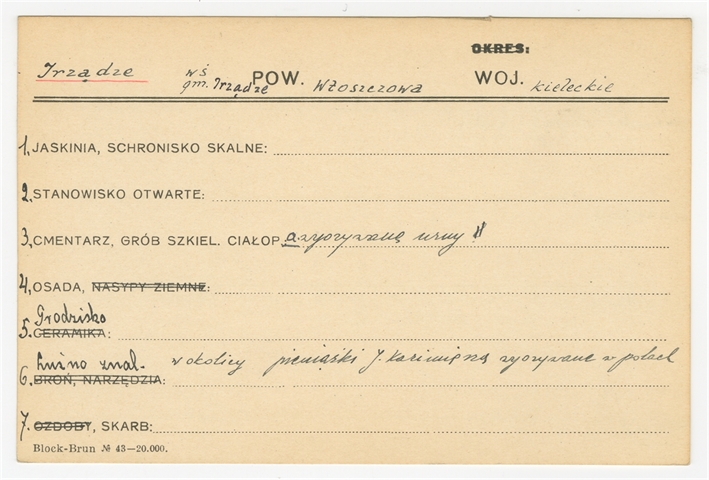 OKRES:
Irządze wś POW. Włoszczowa WOJ. kieleckie
gm. Irządze
1, JASKINIA, SCHRONISKO SKALNE:
2. STANOWISKO OTWARTE:
3, CMENTARZ, GRÓB SZKIEL. CIAŁOP. wyorywane urny
4, OSADA, NASYPY ZIEMNE:
Grodzisko
5. CERAMIKA:
Luźno znal. w okolicy pieniążki J. Kazimierza wyorywane w polach
6. BROŃ, NARZĘDZIA:
7. OZDOBY, SKARB:
Block-Brun № 43—20.000.